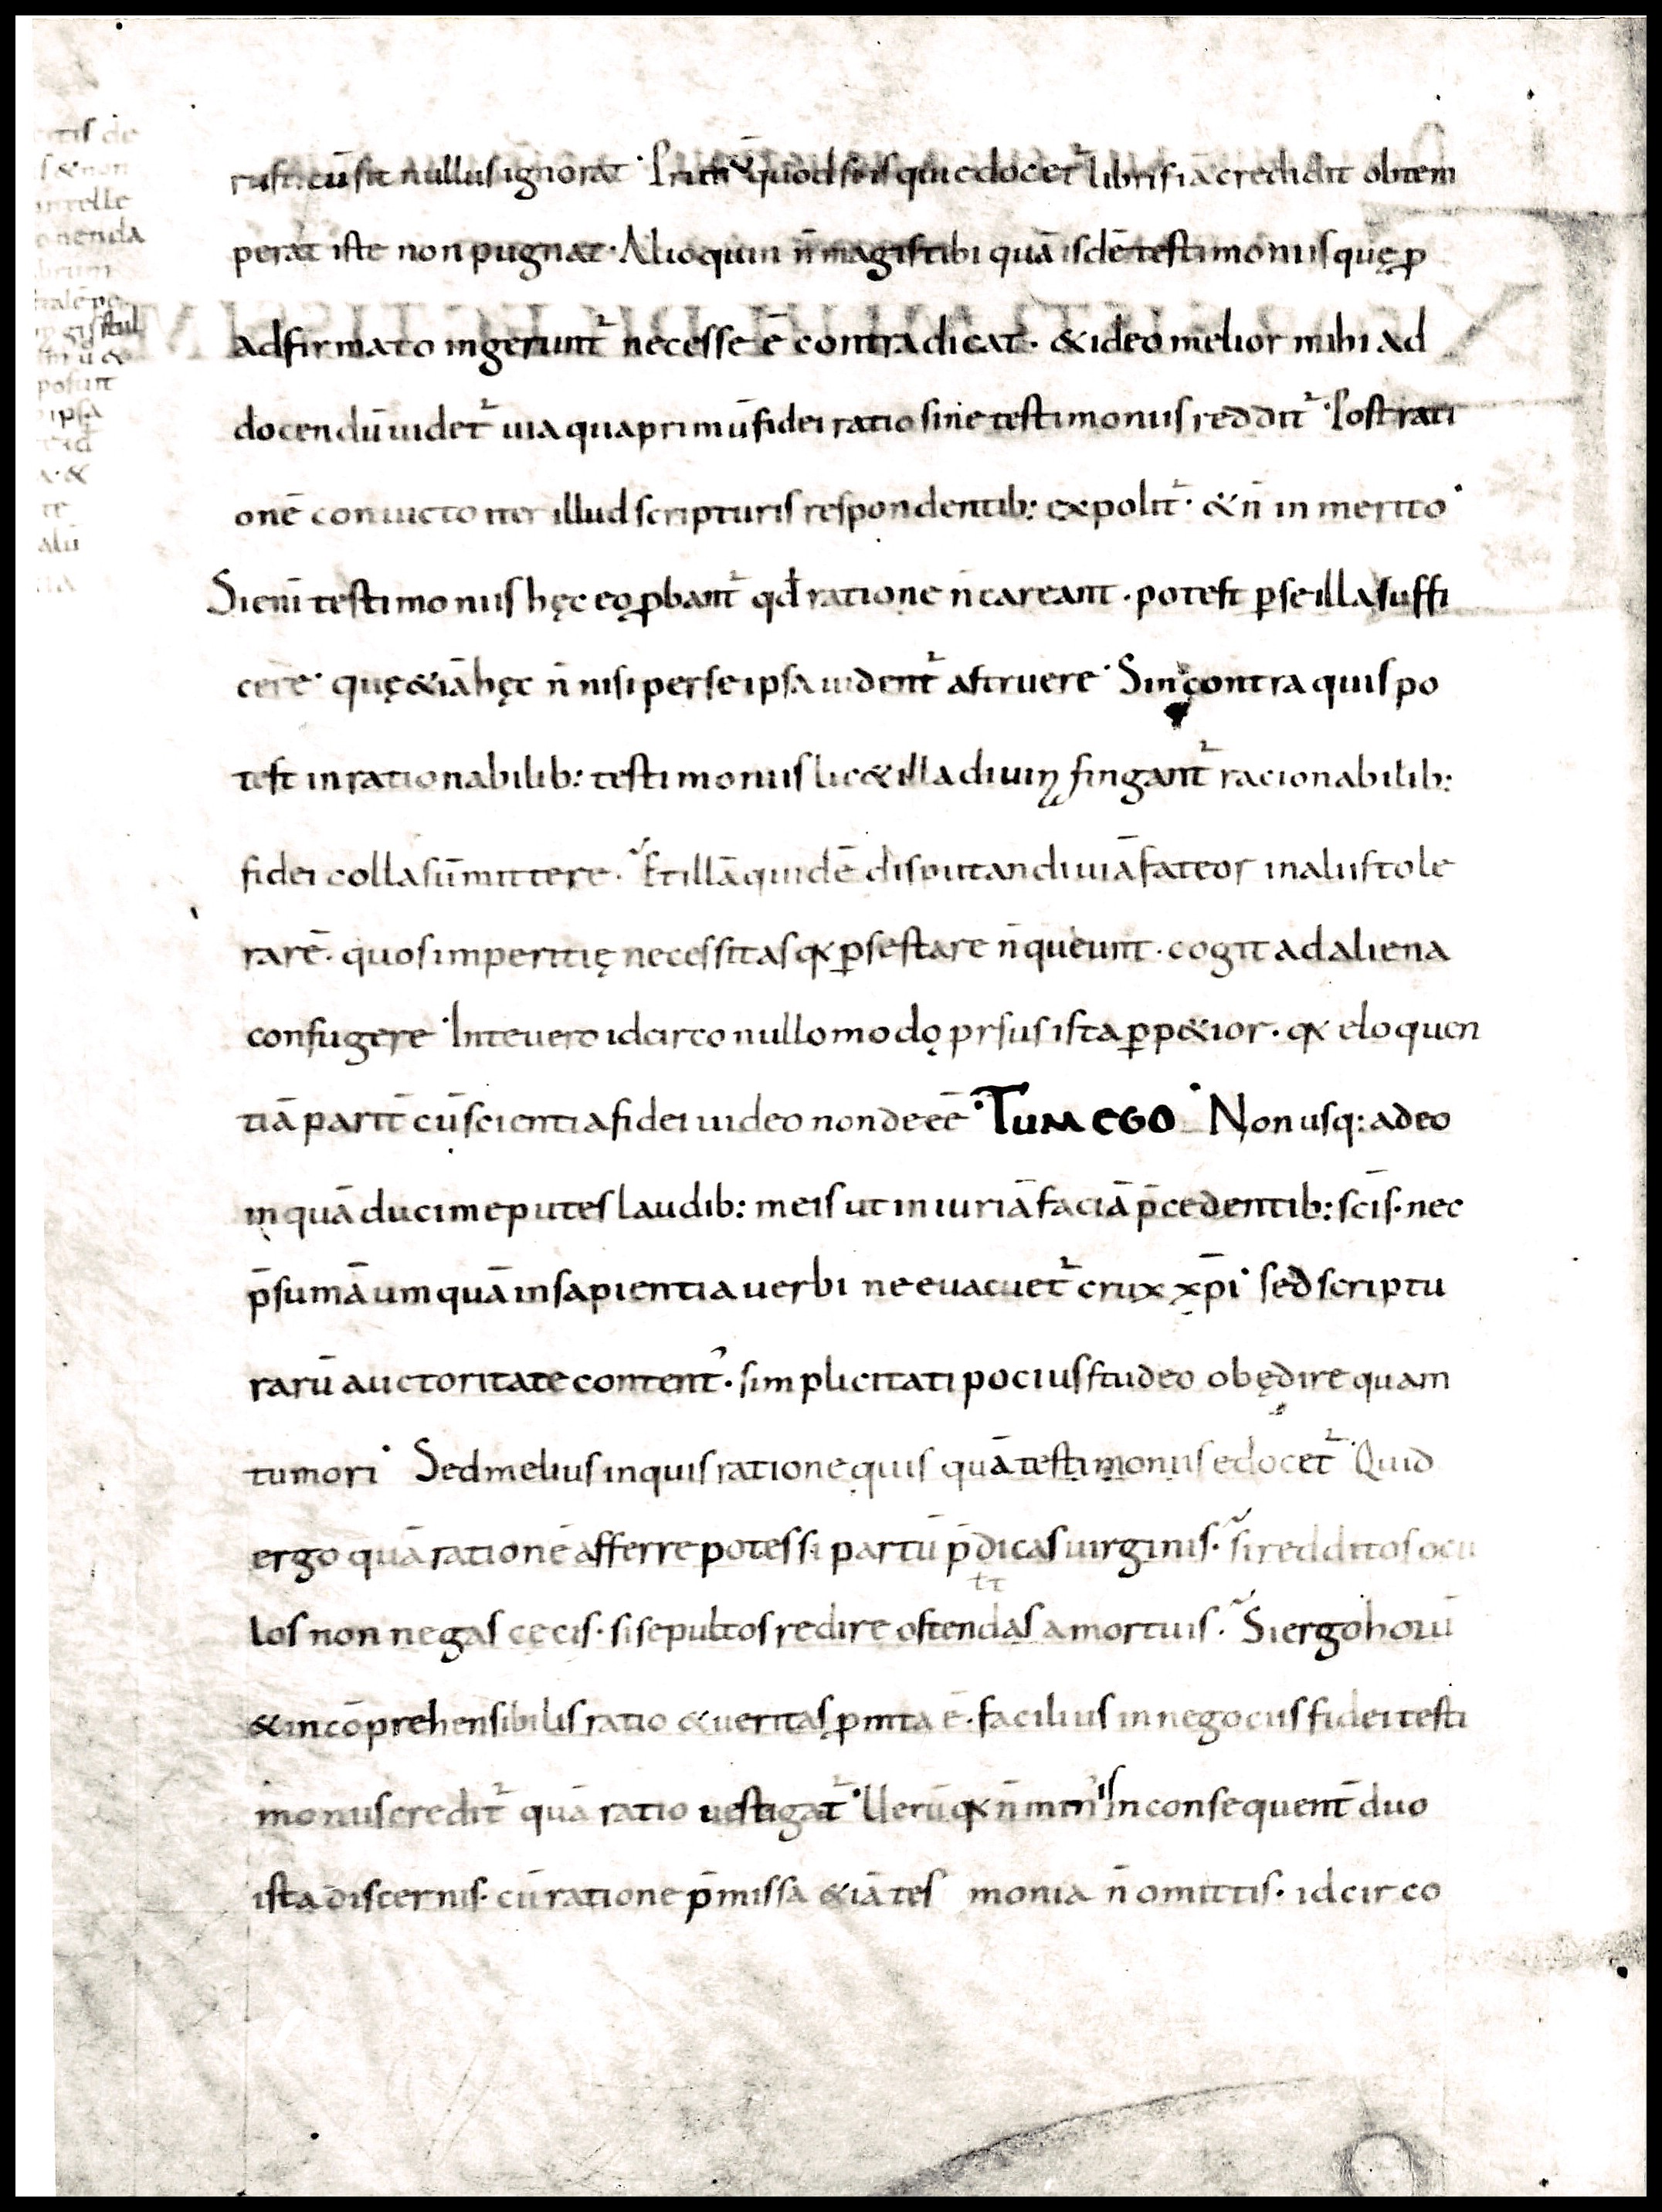 rusticū sit nullus ignorat · quod si is qui edocet᷑ libris iā crediderit obtem
perat iste non pugnat · Alioquin n̄ magis tibi quā isdē testimoniis quę ꝓ
adfirmato ingerunt᷑ necesse ē contradicat · & ideo melior mihi ad
docendū uidet᷑ uia qua primū fidei ratio sine testimoniis reddit᷑ · Post rati
onē conuicto iter illud scripturis respondentib: expolit᷑ · & n̄ inmerito ·
Si eni testimoniis hęc eo ꝓbant᷑ qđ ratione n̄ careant · potest ꝑ se illa suffi
cere · quę &iā hęc n̄ nisi per se ipsa uident᷑ astruere · Sin contra quis po
test inrationabilib: testimoniis lic& illa diuinꝫ fingant᷑ racionabilib:
fidei colla sūmittere · Et illā quidē disputandi uiā fateor in aliis tole
rarē · quos imperitię necessitas qꝛ ꝑ se stare n̄ queunt · cogit ad aliena
confugere · In te uero idcirco nullo modo prsus ista ꝑp&ior · qꝛ eloquen
tiā parit̄ cū scientia fidei uideo non deeē · TUM EGO · Non usq: adeo
inquā duci me putes laudib: meis ut iniuriā faciā p̄cedentib: sc̄is · nec
p̄sumā umquā in sapientia uerbi ne euacuet᷑ crux xp̄i · sed scriptu
rarū auctoritate content᾽ · simplicitati pocius studeo obędire quam
tumori · Sed melius inquis ratione quis quā testimoniis edocet᷑ · Quid
ergo quā rationē afferre potes si partū p̄dicas uirginis · si redditos ocu
los non negas cęcis · si sepultos redire ostendas a mortuis · Si ergo horū
& incōprehensibilis ratio & ueritas ꝑmta ē · facilius in negociis fidei testi
moniis credit᷑ quā ratio uestigat᷑ · Uerū qꝛ n̄ in consequent̄ duo
ista discernis · cū ratione p̄missa &iā tes monia n̄ omittis · idcirco